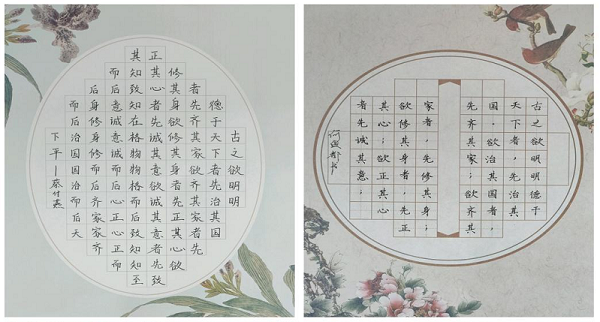 古之欲明明
德于天下者先治其国
者先齐其家欲齐其家者先
修其身欲修其身者先正其心欲
正其心者先诚其意欲诚其意者先致
其知致知在格物物格而后致知知至
而后意诚意诚而后心正心正而
后身修身修而后齐家家齐
而后治国国治而后天
下平——蔡付燕
古之欲明明德于
天下者，先治其
国，欲治其国者，
先齐其家；欲齐其
家者，先修其身；
欲修其身者，先正
其心；欲正其心
者先诚其意；